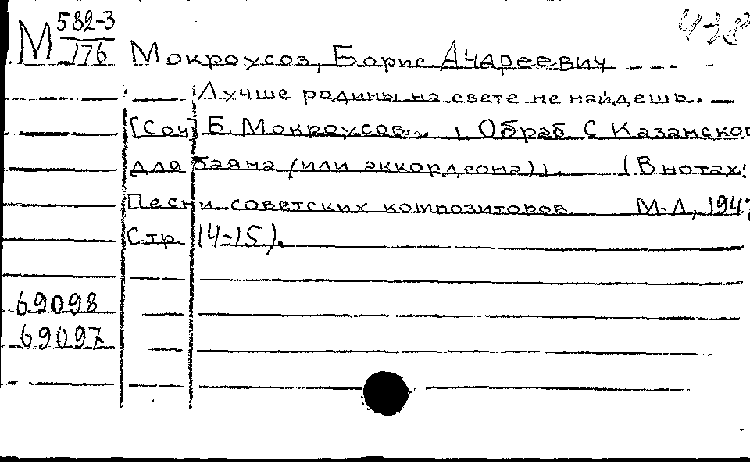 М 582-3/176
438
Мокроусов, Борис Андреевич
Лучше родины на свете не найдешь.
[Соч] Б. Мокроусов, Обраб С Казанско
для баяна (или аккордеона)). (В нотах:
Песни советских композиторов М-Л, 194
Стр 14-15).
69098
69097